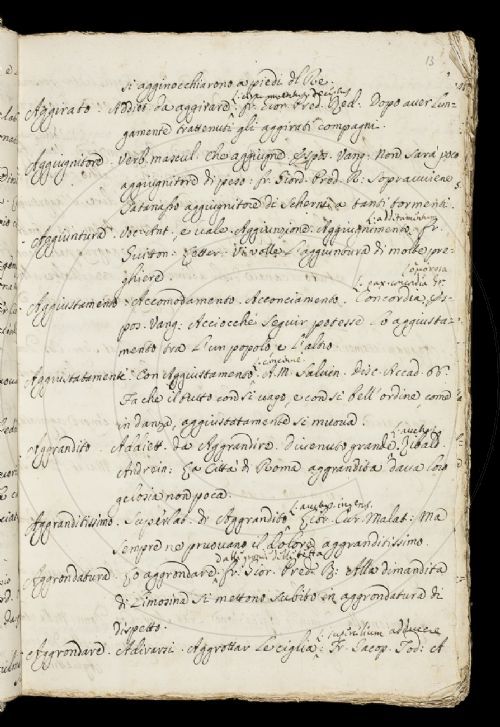 13
si agginocchiarono a piedi del Re.
L. circumventus, deceptus
Aggirato. Addiet. da aggirare. fr. Gior. Pred. Red. Dopo aver lun-
gamente trattenuti gli aggirati compagni.
Aggiugnitore. Verb. mascul. Che aggiugne. Espos. Vang. Non sarà poco
aggiugnitore di peso. fr. Giord. Pred. R. Sopravviene
Satanasso aggiugnitore di scherni a tanti tormenti
L. additamentum
Aggiuntura. Voc. Ant. e vale Aggiunzione. Aggiugnimento. Fr.
Guitton. Letter. Vi volle l'aggiuntura di molte pre-
ghiere.
Aggiustamento. Accomodamento. Acconciamento. Concordia. Es-
pos. Vang. Acciocchè seguir potesse lo aggiusta-
mento tra l'un popolo e l'altro
L. concinne
Aggiustatamente. Con Aggiustamento. A. M. Salvin. Disc. Accad. 66.
Fa che il tutto con sì vago, e con sì bell'ordine, come
in danza, aggiustatamente si muova.
L. auctus
Aggrandito. Addiett. da Aggrandire. Divenuto grande. Zibald.
Andrein: La Città di Roma aggrandita dava loro
gelosia non poca.
L. auctus ingens.
Aggranditissimo. Superlat. di Aggrandito. Libr. Cur. Malat: Ma
sempre ne pruovano il dolore aggranditissimo.
Aggrondatura. Lo aggrondare. fr. Gior. Pred. R: Alla dimandita
di limosina si mettono subito in aggrondatura di
dispetto.
L. supercilium adducere
Aggrondare. Adirarsi. Aggrottar le ciglia. Fr. Iacop. Tod: A